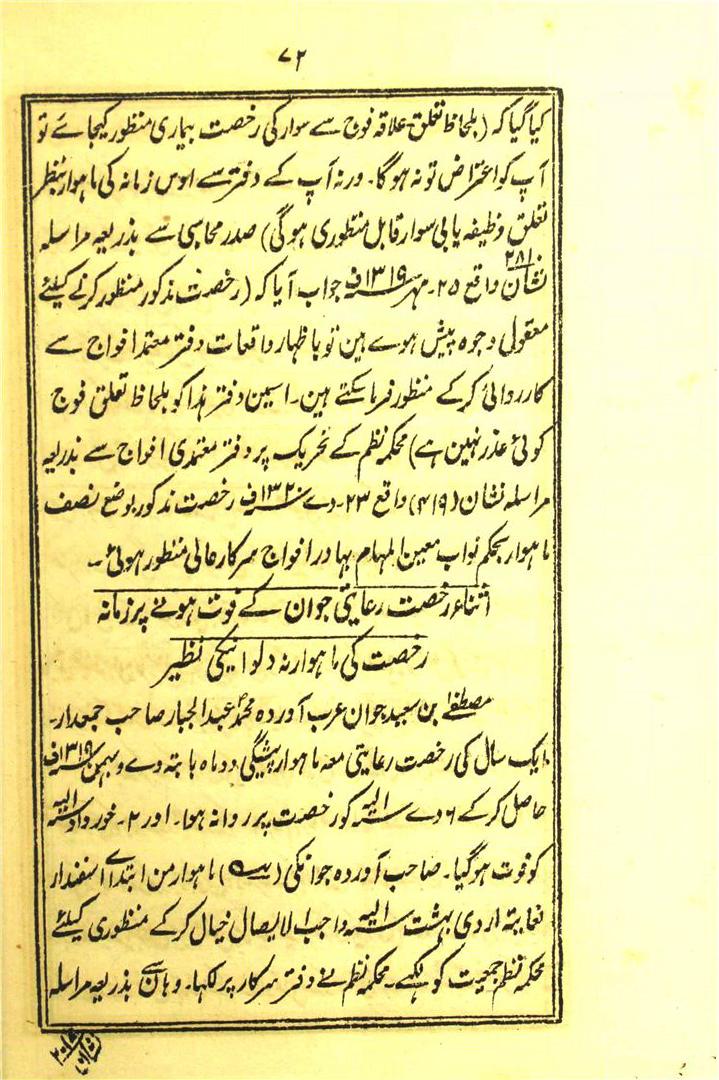 ۷۲
کیا گیا کہ (بلحاظ تعلق علاقہ فوج سے سوار کی رخصت بیماری منظور کیجائے تو
آپ کو اعتراض تو نہ ہوگا۔ ورنہ آپ کے دفتر سے اوس زمانہ کی ماہوار بنظر
تعلق وظیفہ یابی سوار قابل منظوری ہوگی) صدر محاسبی سے بذریعہ مراسلہ
نشان ۲۸۱۰ واقع ۲۵۔ مہر ۱۳۱۹ف جواب آیا کہ (رخصت مذکور منظور کرنے کیلئے
معقول وجوہ پیش ہوے ہین تو باظہار واقعات دفتر معتمد افواج سے
کارروائی کرکے منظور فرما سکتے ہین۔ اسمین دفتر ہذا کو بلحاظ تعلق فوج
کوئی عذر نہین ہے) محکمہ نظم کے تحریک پر دفتر معتمدی افواج سے بذریعہ
مراسلہ نشان (۴۱۹) واقع ۲۳۔ دے ۱۳۲۰ف رخصت مذکور بوضع نصف
ماہوار بحکم نواب معین المہام بہادر افواج سرکار عالی منظور ہوئی۔
اثناء رخصت رعایتی جوان کے فوت ہونے پر زمانہ
رخصت کی ماہوار نہ دلوانیکی نظیر
مصطفےٰ بن سعید جوان عرب آوردہ محمد عبدالجبار صاحب جمعدار۔
ایک سال کی رخصت رعایتی معہ ماہوار پیشگی دو ماہ بابتہ دے و بہمن ۱۳۱۹ف
حاصل کرکے ۶ دے سنہ الیہ کو رخصت پر روانہ ہوا۔ اور ۲۔ خورداد سنہ الیہ
کو فوت ہوگیا۔ صاحب آوردہ جوانکی ماہوار من ابتدائے اسفندار
لغایتہ اردی بہشت سنہ الیہ واجب الایصال خیال کرکے منظوری کیلئے
محکمہ نظم جمعیت کو لکھے۔ محکمہ نظم نے دفتر سرکار پر لکھا۔ وہان سے بذریعہ مراسلہ
نشان